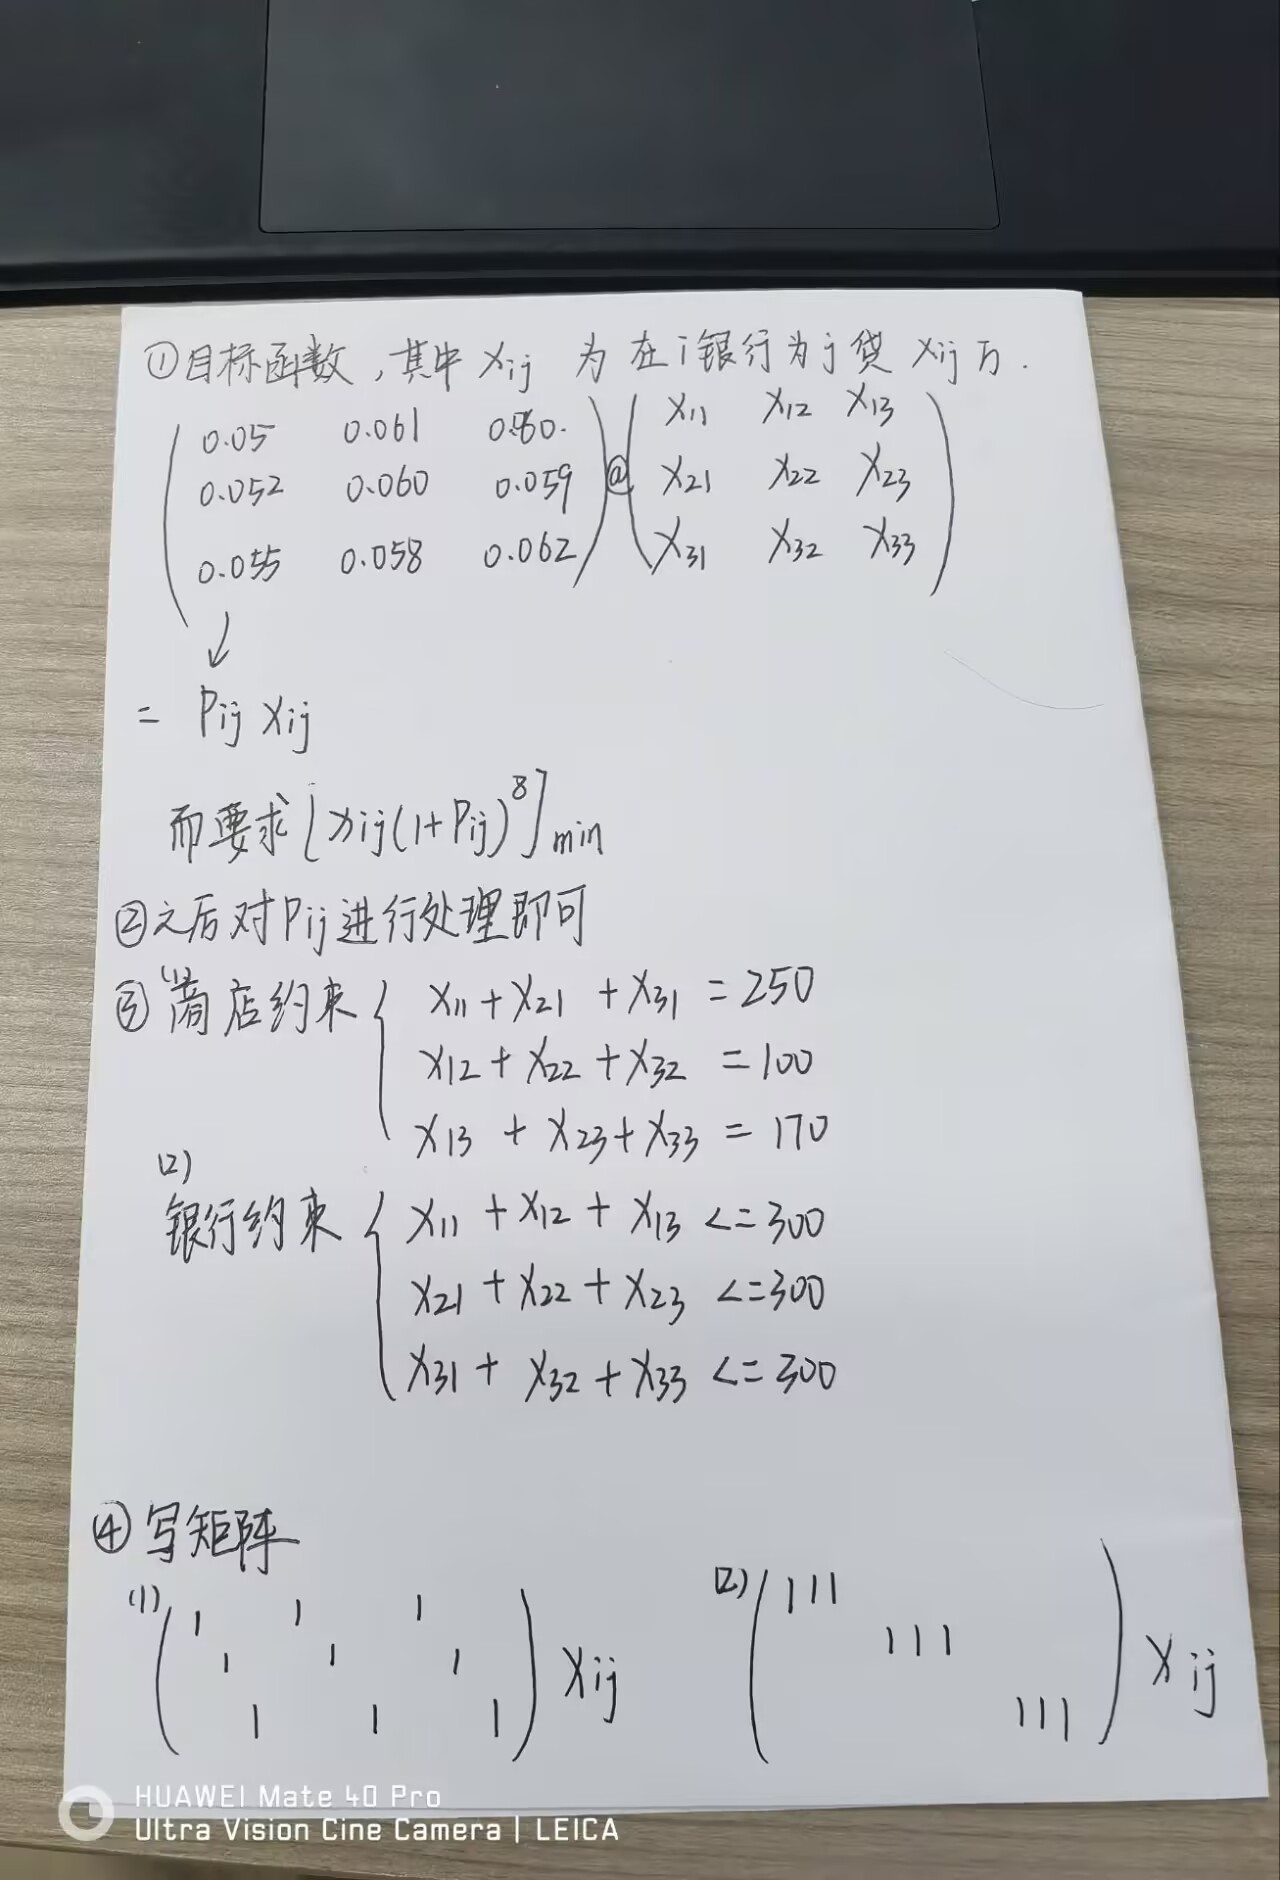 ①目标函数，其中 Xij 为在i银行为j贷 Xij万.
( 0.05 0.061 0.60. ) @ ( X11 X12 X13 )
0.052 0.060 0.059 X21 X22 X23
0.055 0.058 0.062 X31 X32 X33
↓
= Pij Xij
而要求[Xij(1+Pij)^8]min
②之后对Pij进行处理即可
③(1)商店约束 { X11+X21+X31=250
X12+X22+X32=100
X13+X23+X33=170
(2)
银行约束 { X11+X12+X13<=300
X21+X22+X23<=300
X31+X32+X33<=300
④写矩阵
(1) ( 1 1 1 ) Xij (2) ( 111 ) Xij
1 1 1 111
1 1 1 111
HUAWEI Mate 40 Pro
Ultra Vision Cine Camera | LEICA